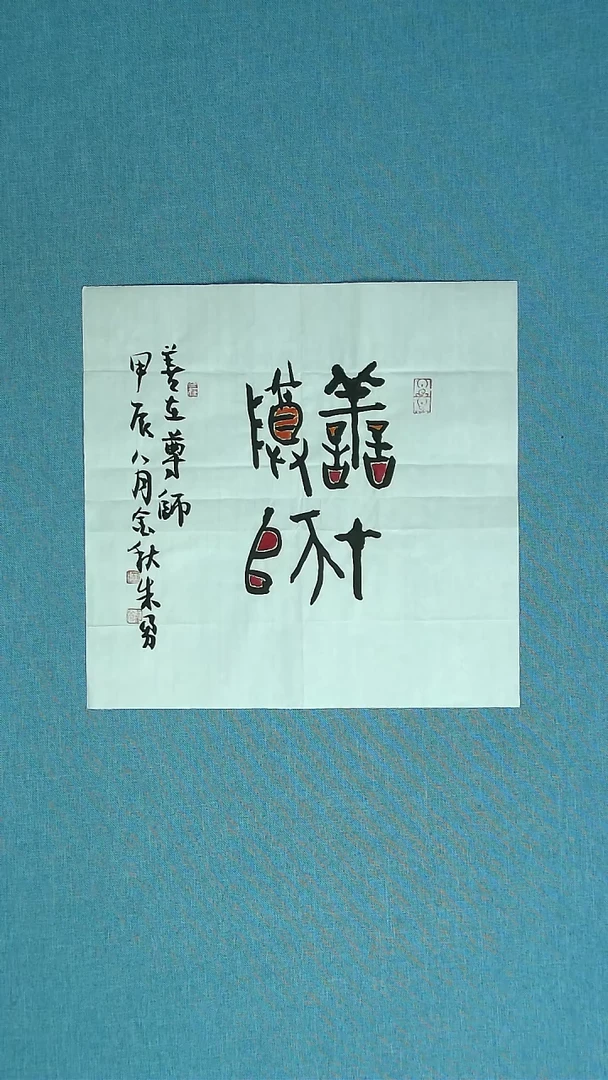 善在
尊師
善在尊師
甲辰八月金秋朱勇